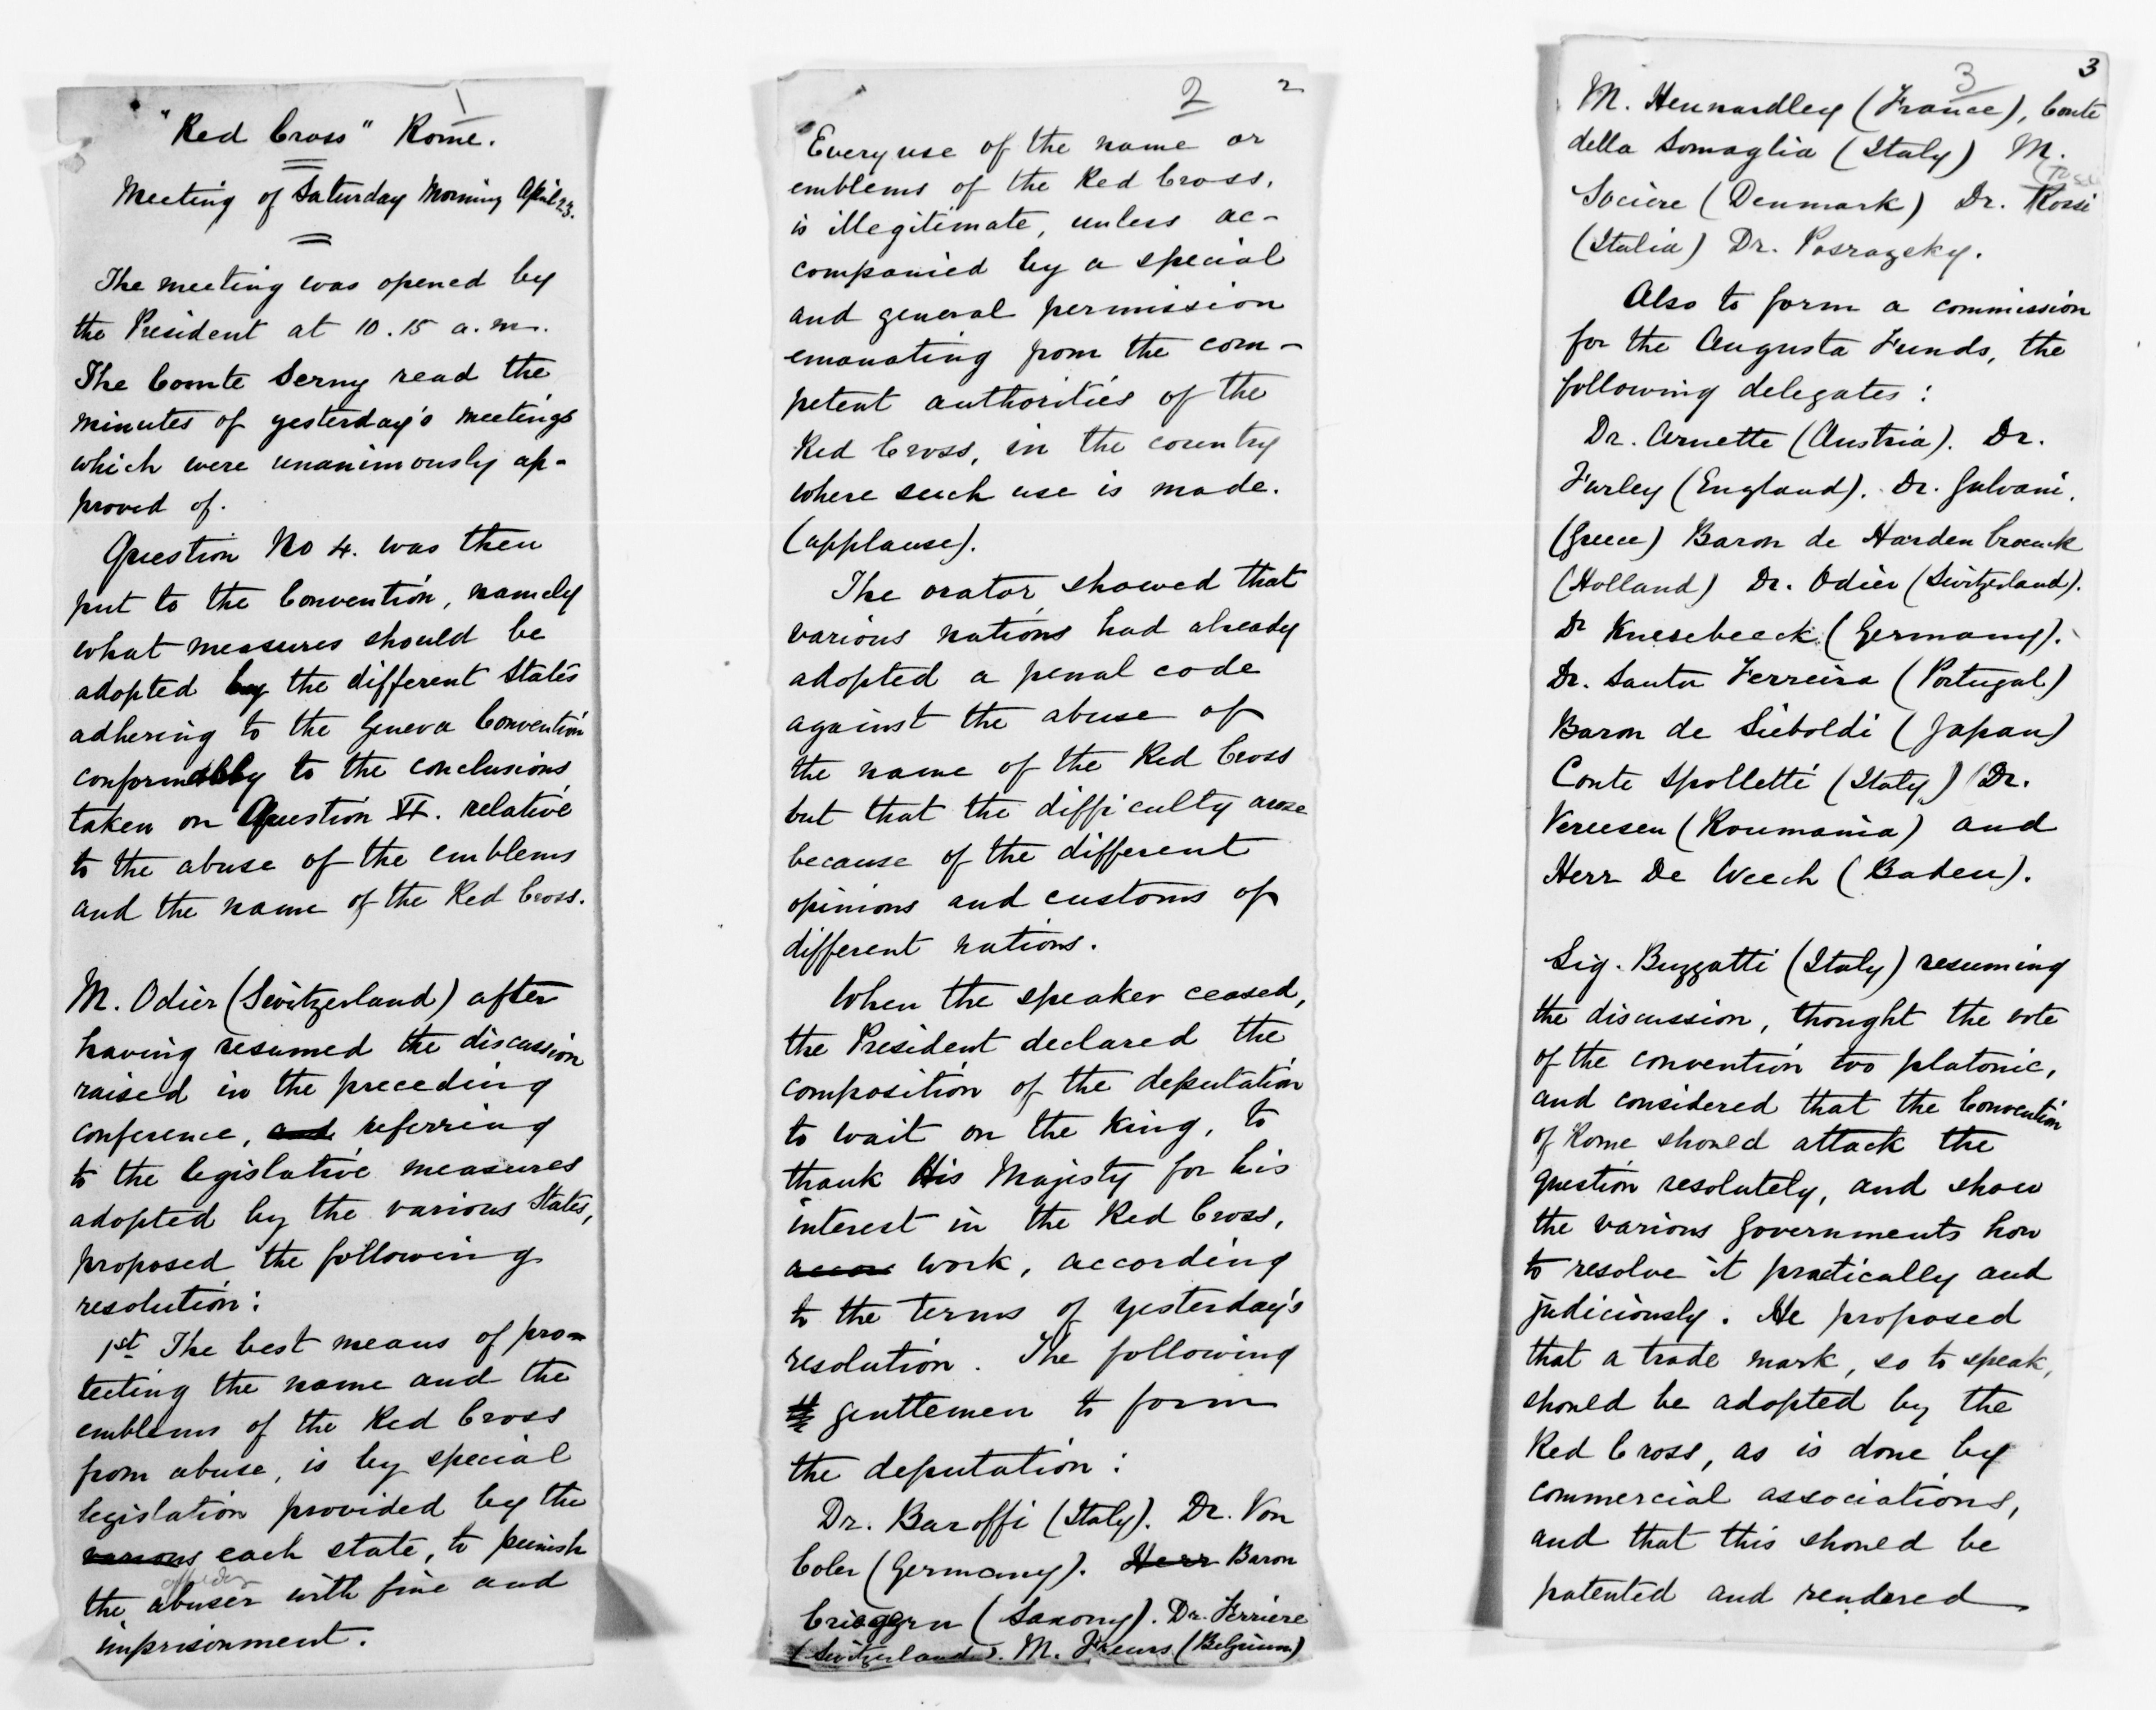 1
"Red Cross" Rome.
Meeting of Saturday Morning April 23.
The meeting was opened by
the President at 10.15 a.m.
The Comte Serny read the
minutes of yesterday's meetings
which were unanimously ap-
proved of.
Question No 4. was then
put to the Convention, namely
what measures should be
adopted by the different States
adhering to the Geneva Convention
conformably to the conclusions
taken on Question VI. relative
to the abuse of the emblems
and the name of the Red Cross.
M. Odier (Switzerland) after
having resumed the discussion
raised in the preceding
conference, and referring
to the legislative measures
adopted by the various States,
proposed the following
resolution:
1st The best means of pro-
tecting the name and the
emblems of the Red Cross
from abuse, is by special
legislation provided by the
various each state, to punish
the abuser with fine and
imprisonment.
2 2
Every use of the name or
emblems of the Red Cross,
is illegitimate, unless ac-
companied by a special
and general permission
emanating from the com-
petent authorities of the
Red Cross, in the country
where such use is made.
(applause).
The orator showed that
various nations had already
adopted a penal code
against the abuse of
the name of the Red Cross
but that the difficulty arose
because of the different
opinions and customs of
different nations.
When the speaker ceased,
the President declared the
composition of the deputation
to wait on the King, to
thank His Majesty for his
interest in the Red Cross,
work, according
to the terms of yesterday's
resolution. The following
gentlemen to form
the deputation:
Dr. Baroffi (Italy). Dr. Von
Coler (Germany). Herr Baron
Crieggrn (Saxony). Dr. Ferriere
(Switzerland). M. Freurs (Belgium)
3 3
M. Hennardley (France), Conte
della Somaglia (Italy) M.
Sociere (Denmark) Dr. Rossi
(Italia) Dr. Posrazeky.
Also to form a commission
for the Augusta Funds, the
following delegates:
Dr. Arnette (Austria). Dr.
Furley (England). Dr. Galvani.
(Greece) Baron de Hardenbroeuck
(Holland) Dr. Odier (Switzerland).
Dr Knesebeeck (Germany).
Dr. Santu Ferreira (Portugal)
Baron de Sieboldi (Japan)
Conte Spolletti (Italy) Dr.
Vereesen (Roumania) and
Herr De Weech (Baden).
Sig. Buzzatti (Italy) resuming
the discussion, thought the vote
of the convention too platonic,
and considered that the Convention
of Rome should attack the
question resolutely, and show
the various governments how
to resolve it practically and
judiciously. He proposed
that a trade mark, so to speak,
should be adopted by the
Red Cross, as is done by
commercial associations,
and that this should be
patented and rendered